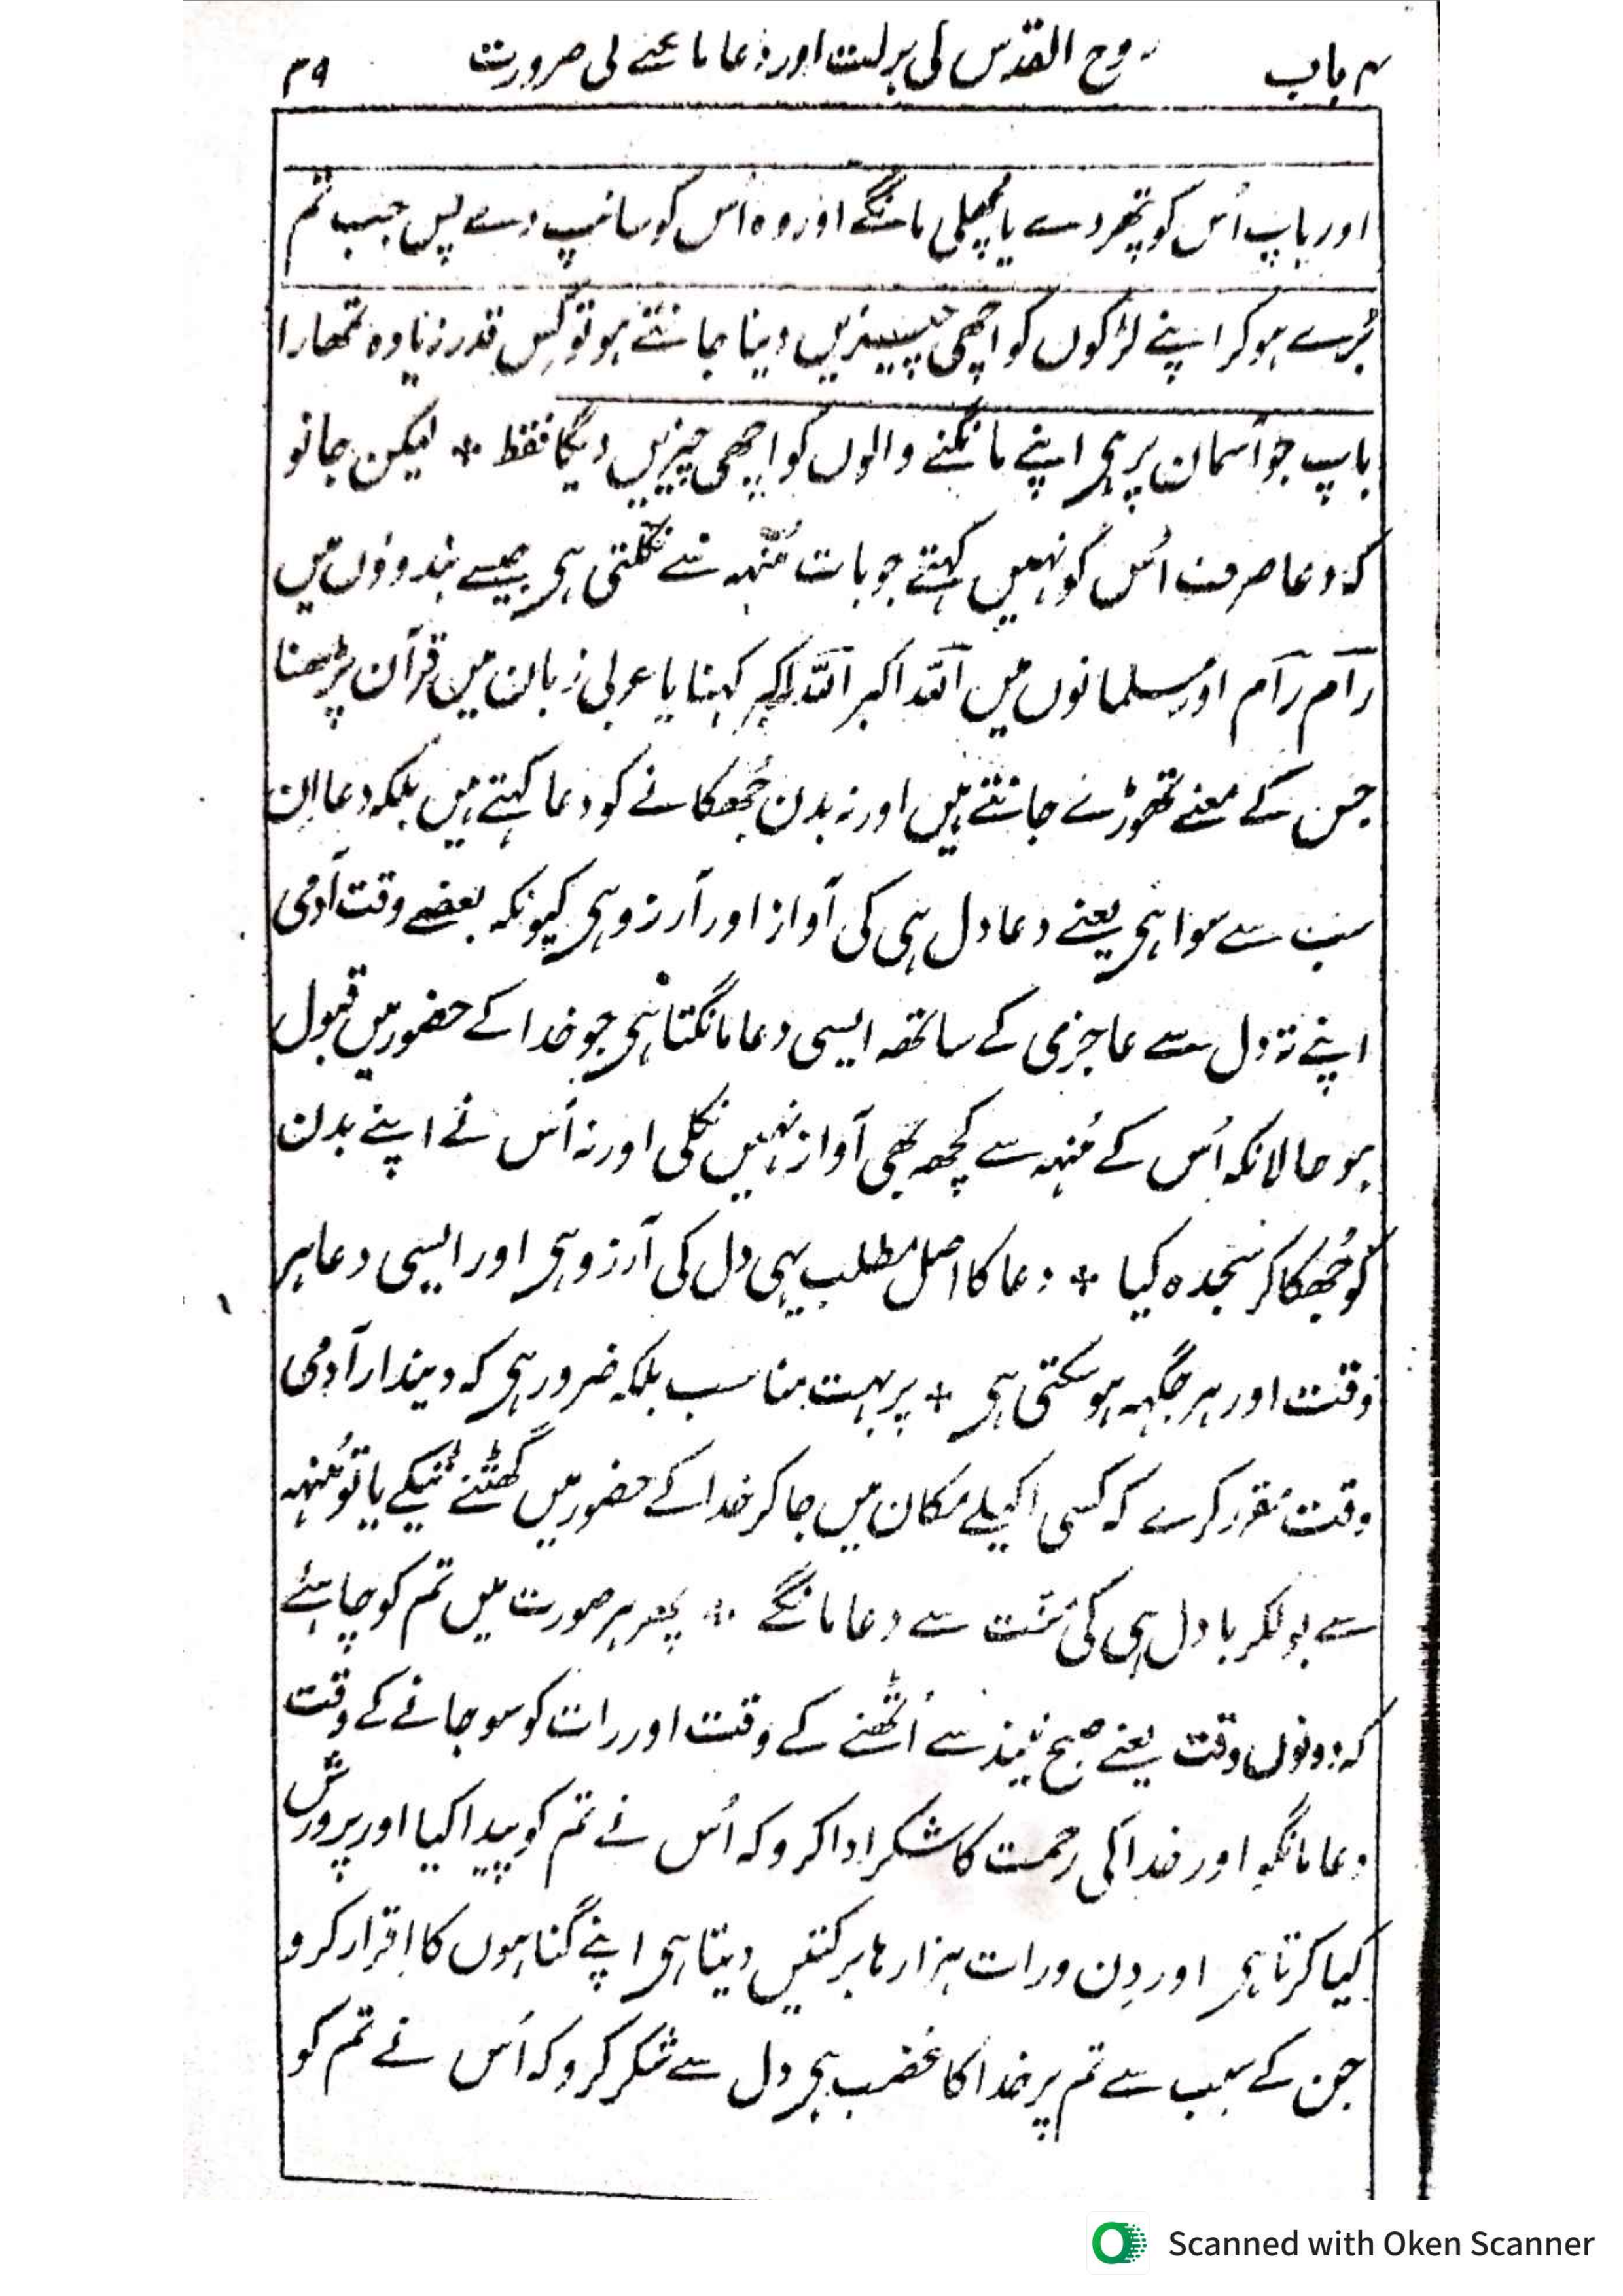 ۴ باب روح القدس کی برکت اور دعا مانگنے کی ضرورت ۳۹
اور باپ اُس کو پتھر دے یا مچھلی مانگے اور وہ اُس کو سانپ دے پس جب تم
بُرے ہو کر اپنے لڑکوں کو اچھی چیزیں دینا جانتے ہو تو کِس قدر زیادہ تمھارا
باپ جو آسمان پر ہی اپنے مانگنے والوں کو اچھی چیزیں دیگا فقط ٭ لیکن جانو
کہ دعا صرف اُس کو نہیں کہتے جو بات مُنہہ سے نکلتی ہی جیسے ہندوؤں میں
رآم رآم اور مسلمانوں میں اللّٰہ اکبر اللّٰہ اکبر کہنا یا عربی زبان میں قرآن پڑھنا
جس کے معنے تھوڑے جانتے ہیں اور نہ بدن جُھکانے کو دعا کہتے ہیں بلکہ دعا اِن
سب سے سوا ہی یعنے دعا دل ہی کی آواز اور آرزو ہی کیونکہ بعضے وقت آدمی
اپنے تہ دل سے عاجزی کے ساتھہ ایسی دعا مانگتا ہی جو خدا کے حضور میں قبول
ہو حالانکہ اُس کے مُنہہ سے کچھہ بھی آواز نہیں نکلی اور نہ اُس نے اپنے بدن
کو جُھکا کر سجدہ کیا ٭ دعا کا اصل مطلب یہی دل کی آرزو ہی اور ایسی دعا ہر
وقت اور ہر جگہہ ہو سکتی ہی ٭ پر بہت مناسب بلکہ ضرور ہی کہ دیندار آدمی
وقت مقرر کرے کہ کسی اکیلے مکان میں جا کر خدا کے حضور میں گھٹنے ٹیکے یا تو مُنہہ
سے بولکر یا دل ہی کی مَنّت سے دعا مانگے ٭ پھر ہر صورت میں تم کو چاہئے
کہ دونوں وقت یعنے صبح نیند سے اُٹھنے کے وقت اور رات کو سو جانے کے وقت
دعا مانگو اور خدا کی رحمت کا شکر ادا کرو کہ اُس نے تم کو پیدا کیا اور پرورش
کیا کرتا ہی اور دِن و رات ہزارہا برکتیں دیتا ہی اپنے گناہوں کا اِقرار کرو
جن کے سبب سے تم پر خدا کا غضب ہی دل سے شکر کرو کہ اُس نے تم کو
Scanned with Oken Scanner